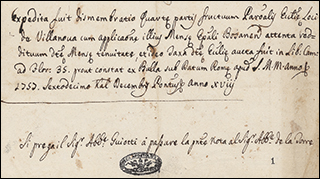 Expedita fuit dismembratio Quartę partis fructuum Parochlis Ecclię Loci
de Villanova cum applicaõne illius Mensę Epali Bosanen attenta reddi
dituum dtę Mensę tenuitate, cuius taxa dtę Eccłię aucta fuit in Lib. Camę
ad flor. 35. prout constat ex Bulla sub Datum Romę apud S. M. M. Anno
1757. Sextodecimo Kal Decembris Pontus Anno xviij
Si prega il Sigr. Abbe Guiotti à passare la pñte nota al Sigr. Abbe de la Torre
1